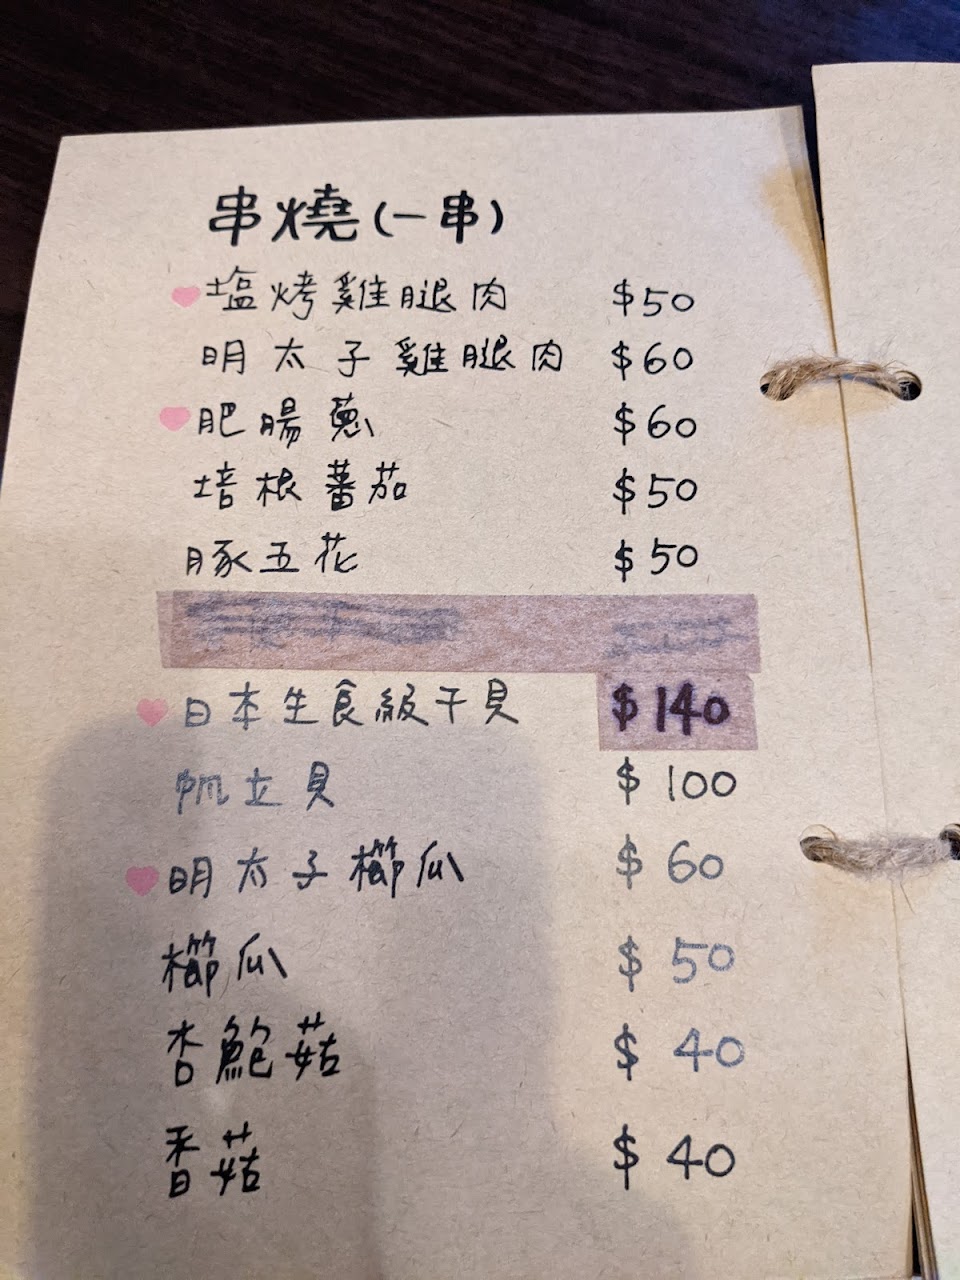 串燒(一串)
塩烤雞腿肉 $50
明太子雞腿肉 $60
肥腸蔥 $60
培根蕃茄 $50
豚五花 $50
日本生食級干貝 $140
帆立貝 $100
明太子櫛瓜 $60
櫛瓜 $50
杏鮑菇 $40
香菇 $40